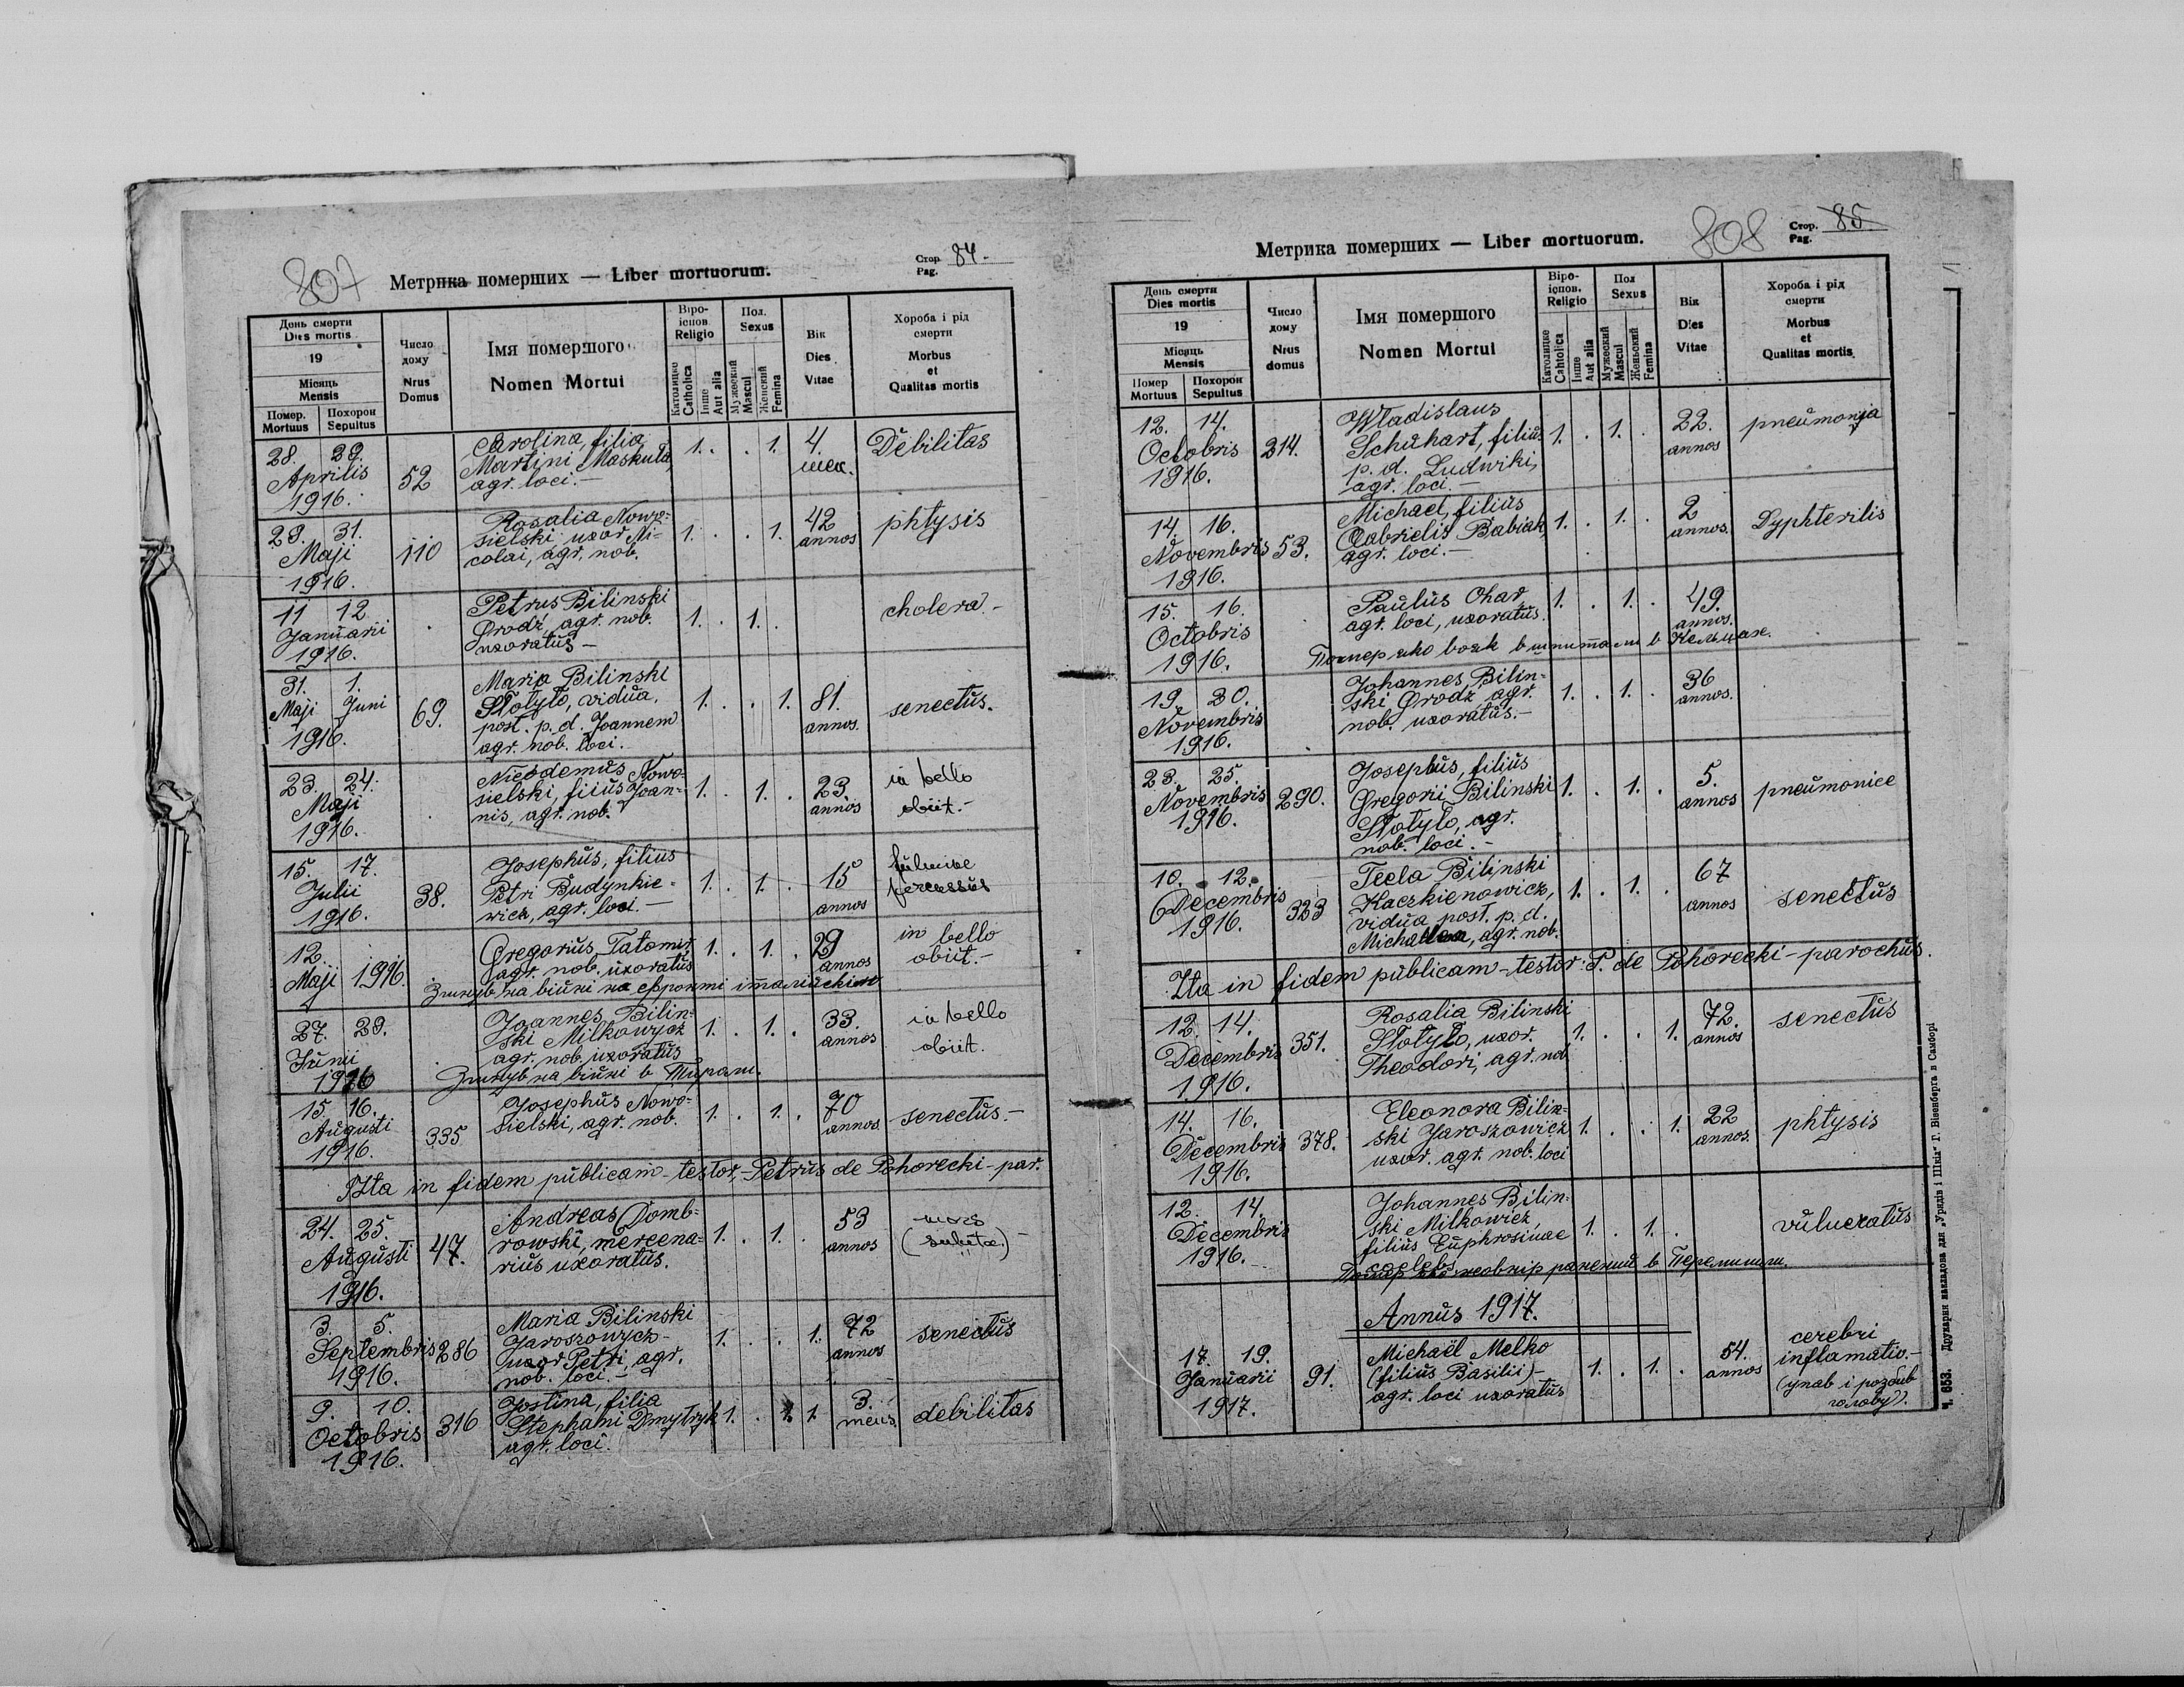 807
Метрика померших — Liber mortuorum.
Стор. 84.-
Pag.
День смерти
Dies mortis
19
Місяць
Mensis
Помер. Похорон
Mortuus Sepultus
Число
дому
Nrus
Domus
Імя помершого
Nomen Mortui
Віро-
іспов.
Religio
Католицке
Catholica
Інше
Aut alia
Пол.
Sexus
Мужеский
Mascul
Женский
Femina
Вік
Dies
Vitae
Хороба і рід
смерти
Morbus
et
Qualitas mortis
28. 29.
Aprilis
1916.
52
Carolina, filia
Martini Maskula,
agr. loci.—
1. . . 1.
4.
Debilitas
29. 31.
Maji
1916.
110
Rosalia Nowo-
sielski uxor Ni-
colai, agr. nob.
1. . . 1.
42
annos
phtysis
11 12
Januarii
1916.
.
Petrus Bilinski
Grodz, agr. nob.
uxoratus —
1. . 1. .
cholera.-
31. 1.
Maji Juni
1916.
69.
Maria Bilinski
Slotylo, vidua,
post. p. d. Joannem
agr. nob. loci.
1. . . 1.
81.
annos.
senectus.
23. 24.
Maji
1916.
.
Nicodemus Nowo-
sielski, fiiius Joan-
nis, agr. nob.
1. . 1. .
23.
annos
in bello
obiit.-
15. 17.
Julii
1916.
38.
Josephus, filius
Petri Budynkie-
wicz, agr. loci.—
1. . 1. .
15
annos
fulmine
percussus
12.
Maji 1916.
.
Gregorius Tatomir,
agr. nob. uxoratus
1. . 1. .
29
annos
in bello
obiit.-
Згинув на війні на фронті італійскім
27. 29.
Junii
1916
.
Joannes Bilin-
ski Milkowycz
agr. nob. uxoratus
1. . 1. .
33.
annos
in bello
obiit.
Згинув на війні в Тиролі.
15. 16.
Augusti
1916.
335
Josephus Nowo-
sielski, agr. nob.
1. . 1. .
70
annos.
senectus.-
Ita in fidem publicam - testor, - Petrus de Pohorecki - par.
24. 25.
Augusti
1916.
47.
Andreas Domb-
rowski, mercena-
rius uxoratus.
1. . 1. .
53
annos
mors
(subita.) -
3. 5.
Septembris
1916.
286
Maria Bilinski
Jaroszowycz-
uxor Petri, agr.
nob. loci.-
1. . . 1.
72
annos
senectus
9. 10.
Octobris
1916.
316
Justina, filia
Stephani Dmytryk
agr. loci.
1. . 1.
3.
mens.
debilitas
Метрика померших — Liber mortuorum.
808
Стор. 85.
Pag.
День смерти
Dies mortis
19
Місяць
Mensis
Помер Похорон
Mortuus Sepultus
Число
дому
Nrus
domus
Імя помершого
Nomen Mortui
Віро-
іспов.
Religio
Католицке
Cahtolica
Інше
Aut alia
Пол
Sexus
Мужеский
Mascul
Женьский
Femina
Вік
Dies
Vitae
Хороба і рід
смерти
Morbus
et
Qualitas mortis
12. 14.
Octobris
1916.
214.
Wladislaus
Schuhart, filius
p. d. Ludwiki,
agr. loci.-
1. . 1. .
22.
annos
pneumonja
14. 16.
Novembris
1916.
53.
Michael, filius
Gabrielis Babiak,
agr. loci.-
1. . 1. .
2
annos.
Dyphterilis
15. 16.
Octobris
1916.
.
Paulus Ohar
agr. loci, uxoratus.
1. . 1. .
49.
annos.
Помер яко вояк в шпитали в Кельцах.
19. 20.
Novembris
1916.
.
Johannes Bilin-
ski Grodz, agr.
nob. uxoratus.-
1. . 1. .
36
annos.
23. 25.
Novembris
1916.
290.
Josephus, filius
Gregorii Bilinski
Slotylo, agr.
nob. loci.-
1. . 1. .
5.
annos
pneumonice
10. 12.
Decembris
1916.
323
Tecla Bilinski
Kaczkienowicz,
vidua post. p. d.
agr. nob.
1. . 1. .
67
annos
senectus
Ita in fidem publicam - testor: P. de Pohorecki - parochus.
12. 14.
Decembris
1916.
351.
Rosalia Bilinski
Slotylo, uxor.
Theodori, agr. nob
1. . . 1.
72.
annos
senectus
14. 16.
Decembris
1916.
378.
Eleonora Bilin-
ski Jaroszowicz
uxor. agr. nob. loci
1. . . 1.
22
annos.
phtysis
12. 14.
Decembris
1916.
Johannes Bilin-
ski Milkowicz,
filius Euphrosinae
caelebs
1. . 1. .
vulneratus
Помер яко жовнір ранений в Перемишли.
Annus 1917.
17. 19.
Januarii
1917.
91.
Michaël Melko
(filius Basilii)-
agr. loci uxoratus
1. . 1. .
54.
annos
cerebri
inflamatio.-
(упав і розбив
голову).
Ч. 653. Друкарня накладова для „Урядів і Шкіл" Г. Візенберга в Самборі